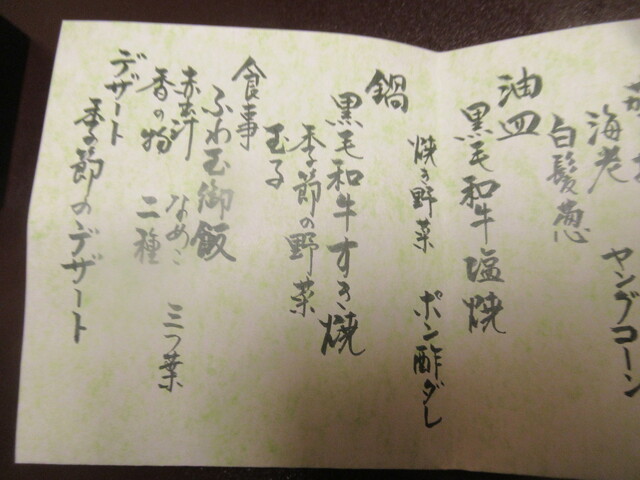 海老 ヤングコーン
白髪葱
油皿
黒毛和牛塩焼
焼き野菜 ポン酢ダレ
鍋
黒毛和牛すき焼
季節の野菜
玉子
食事
ふわ玉御飯
赤出汁 なめこ 三つ葉
香の物 二種
デザート
季節のデザート